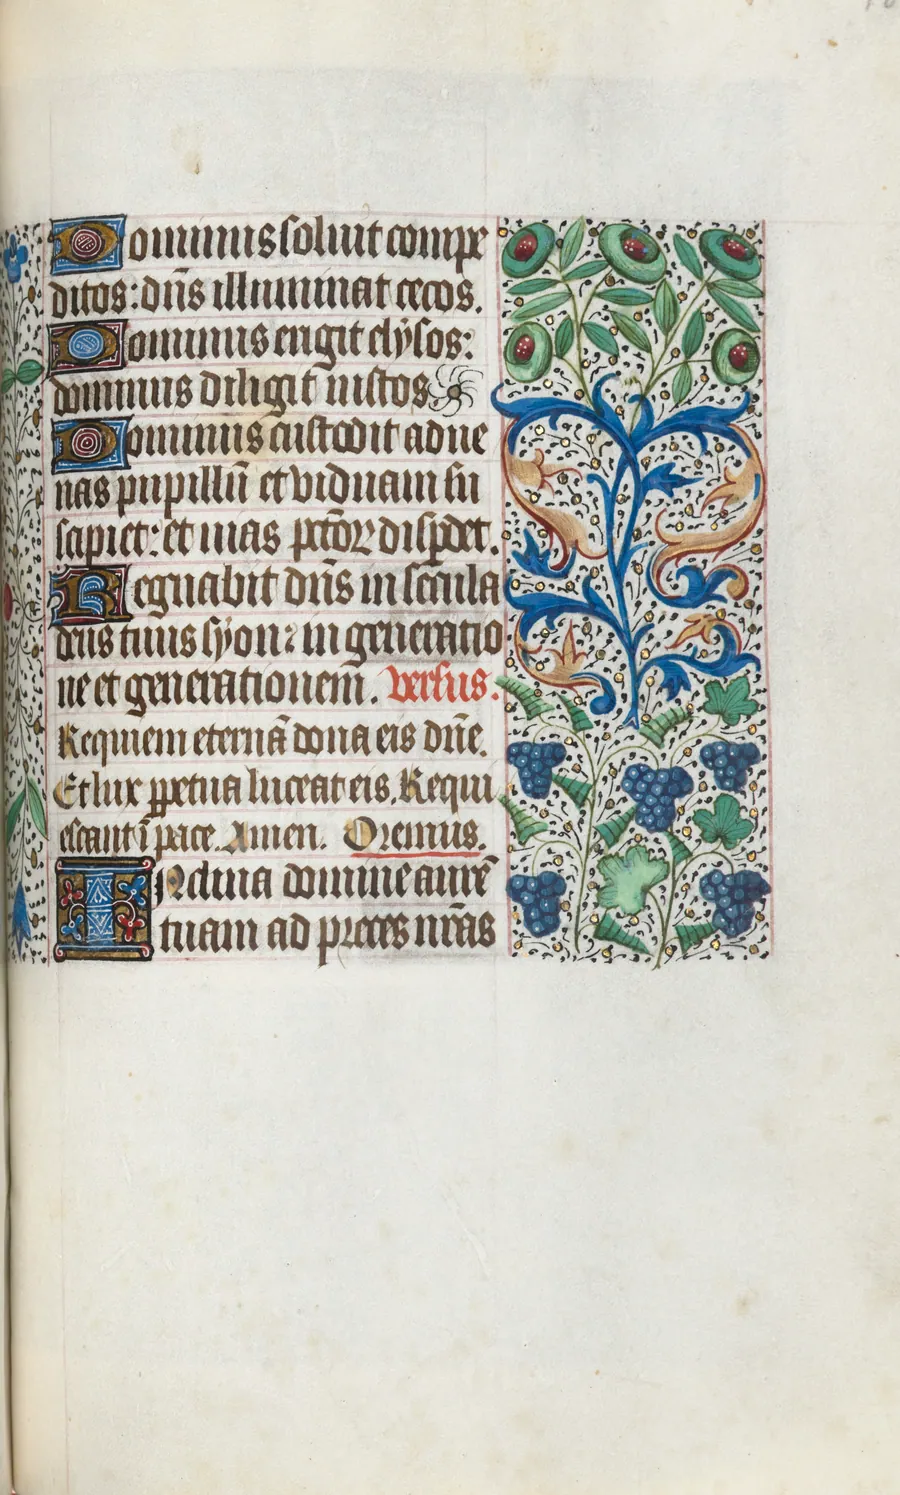 Dominus soluit compe
ditos: dn̄s illuminat cecos.
Dominus erigit elysos:
dominus diligit iustos
Dominus custodit adue
nas pupillū et viduam su
scipiet: et uias pctōꝝ disꝑdet.
Regnabit dn̄s in secula
deus tuus syon: in generatio
ne et generationem̄. Versus.
Requiem eternā dona eis dn̄e.
Et lux ꝑpetua luceat eis. Requi
escant ī pace. Amen. Oremus.
INclina domine aurē
tuam ad preces nr̄as